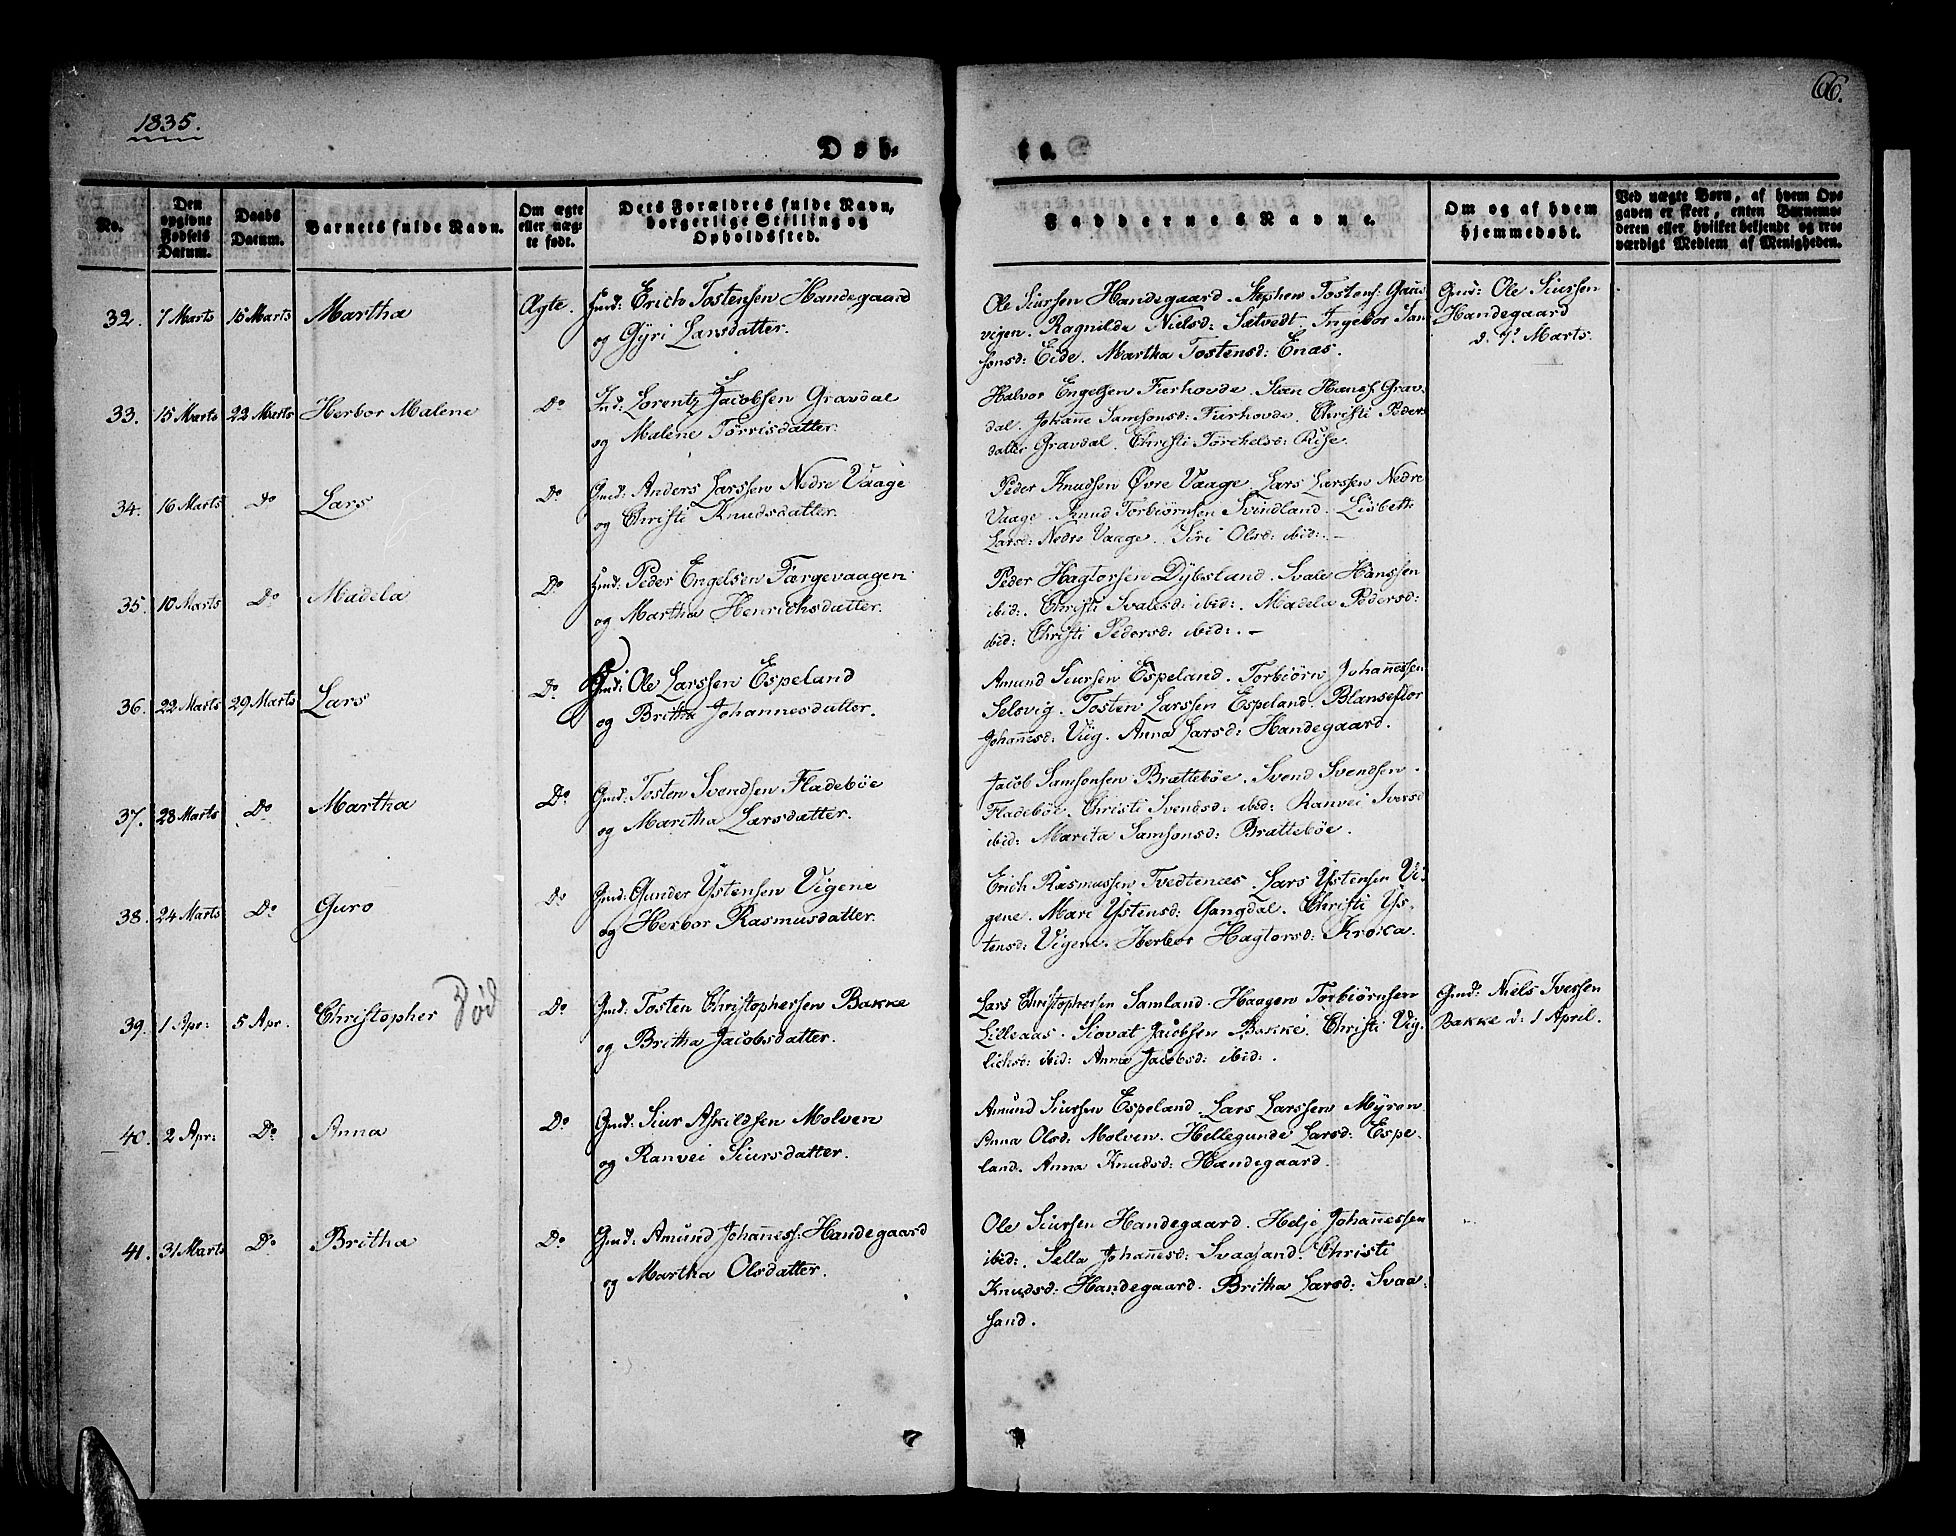 1835.
66.
Døb-
te.
No.
Den opgivne Fødsels Datum.
Daabs Datum.
Barnets fulde Navn.
Om ægte eller uægte født.
Dets Forældres fulde Navn, borgerlige Stilling og Opholdssted.
Faddernes Navne.
Om og af hvem hjemmedøbt.
Ved uægte Børn, af hvem Opgaven er skeet, enten Barnemoderen eller hvilket bekjendt og troværdigt Medlem af Menigheden.
32. 7 Marts 15 Marts Martha Ægte. Erich Tostensen Handegaard
og Gÿri Larsdatter.
Ole Siursen Handegaard. Stephen Tostens: Gaas
vigen. Ragnilda Nielsd: Sætvedt. Ingebor Sam
sonsd: Eide. Martha Tostensd: Enæs.
Gmd: Ole Siursen
Handegaard
d. 7. Marts.
33. 15 Marts 22 Marts Herbor Malene Do Lorentz Jacobsen Gravdal
og Malene Torrisdatter.
Halvor Engelsen Furhovde. Sven Hanss: Grav
dal. Johane Samsonsd: Furhovde. Christi Peders
datter Gravdal. Christi Torchelsd: Rise.
34. 16 Marts Do Lars Do Gmd: Anders Larssen Nedre Vaage
og Christi Knudsdatter.
Peder Knudsen Øvre Vaage. Lars Larssen Nedre
Vaage. Knud Torbiörnsen Svindland. Lisbeth
Larsd: Nedre Vaage. Siri Olsd: ibid:.—
35. 10 Marts Do Madela Do Peder Engelsen Færgevaagen
og Martha Henrichsdatter.
Peder Hagtorsen Dÿbsland. Svale Hanssen
ibid:. Christi Svalesd: ibid:. Madela Pedersd:
ibid: Christi Pedersd: ibid:.—
36. 22 Marts 29 Marts Lars Do. Gmd: Ole Larssen Espeland
og Britha Johannesdatter.
Amund Siursen Espeland. Torbiörn Johanessen
Selsvig. Tosten Larssen Espeland. Blanseflor
Johanesd: Viig. Anna Larsd: Handegaard.
37. 23 Marts Do Martha Do. Gmd: Tosten Svendsen Fladebøe
og Maritha Larsdatter.
Jacob Samsonsen Brættebøe. Svend Svendsen
Fladebøe. Christi Svendsd: ibid: Ranvei Iversd
ibid: Marita Samsonsd: Brættebøe.
38. 24 Marts Do Guro Do Gmd: Gunder Ystensen Vigene
og Herbor Rasmusdatter.
Erich Rasmussen Tvedtenæs. Lars Ystensen Vi-
gene. Mari Ystensd: Gangdal. Christi Ys-
tensd: Vigene. Herbor Hagtorsd:
39. 1 Apr: 5 Apr. Christopher Død Do Gmd: Tosten Christophersen Bakke
og Britha Jacobsdatter.
Lars Christophersen Samland. Haagen Torbiörnsen
Lilleaas. Siovat Jacobsen Bakke. Christi Vig-
lichsd: ibid: Anna Jacobsd: ibid:.
Gmd: Niels Iversen
Bakke d: 1 April.
40. 2 Apr: Do Anna Do Gmd: Siur Askildsen Molven
og Ranvei Siursdatter.
Amund Siursen Espeland. Lars Larssen Mÿren
Anna Olsd: Molven. Hellegunde Larsd: Espe-
land. Anna Knudsd: Handegaard.
41. 31 Marts Do Britha Do. Gmd: Amund Johaness: Handegaard
og Martha Olsdatter.
Ole Siursen Handegaard. Helje Johanessen
ibid:. Sella Johanesd: Svaasand. Christi
Knudsd: Handegaard. Britha Larsd: Svaa-
sand.